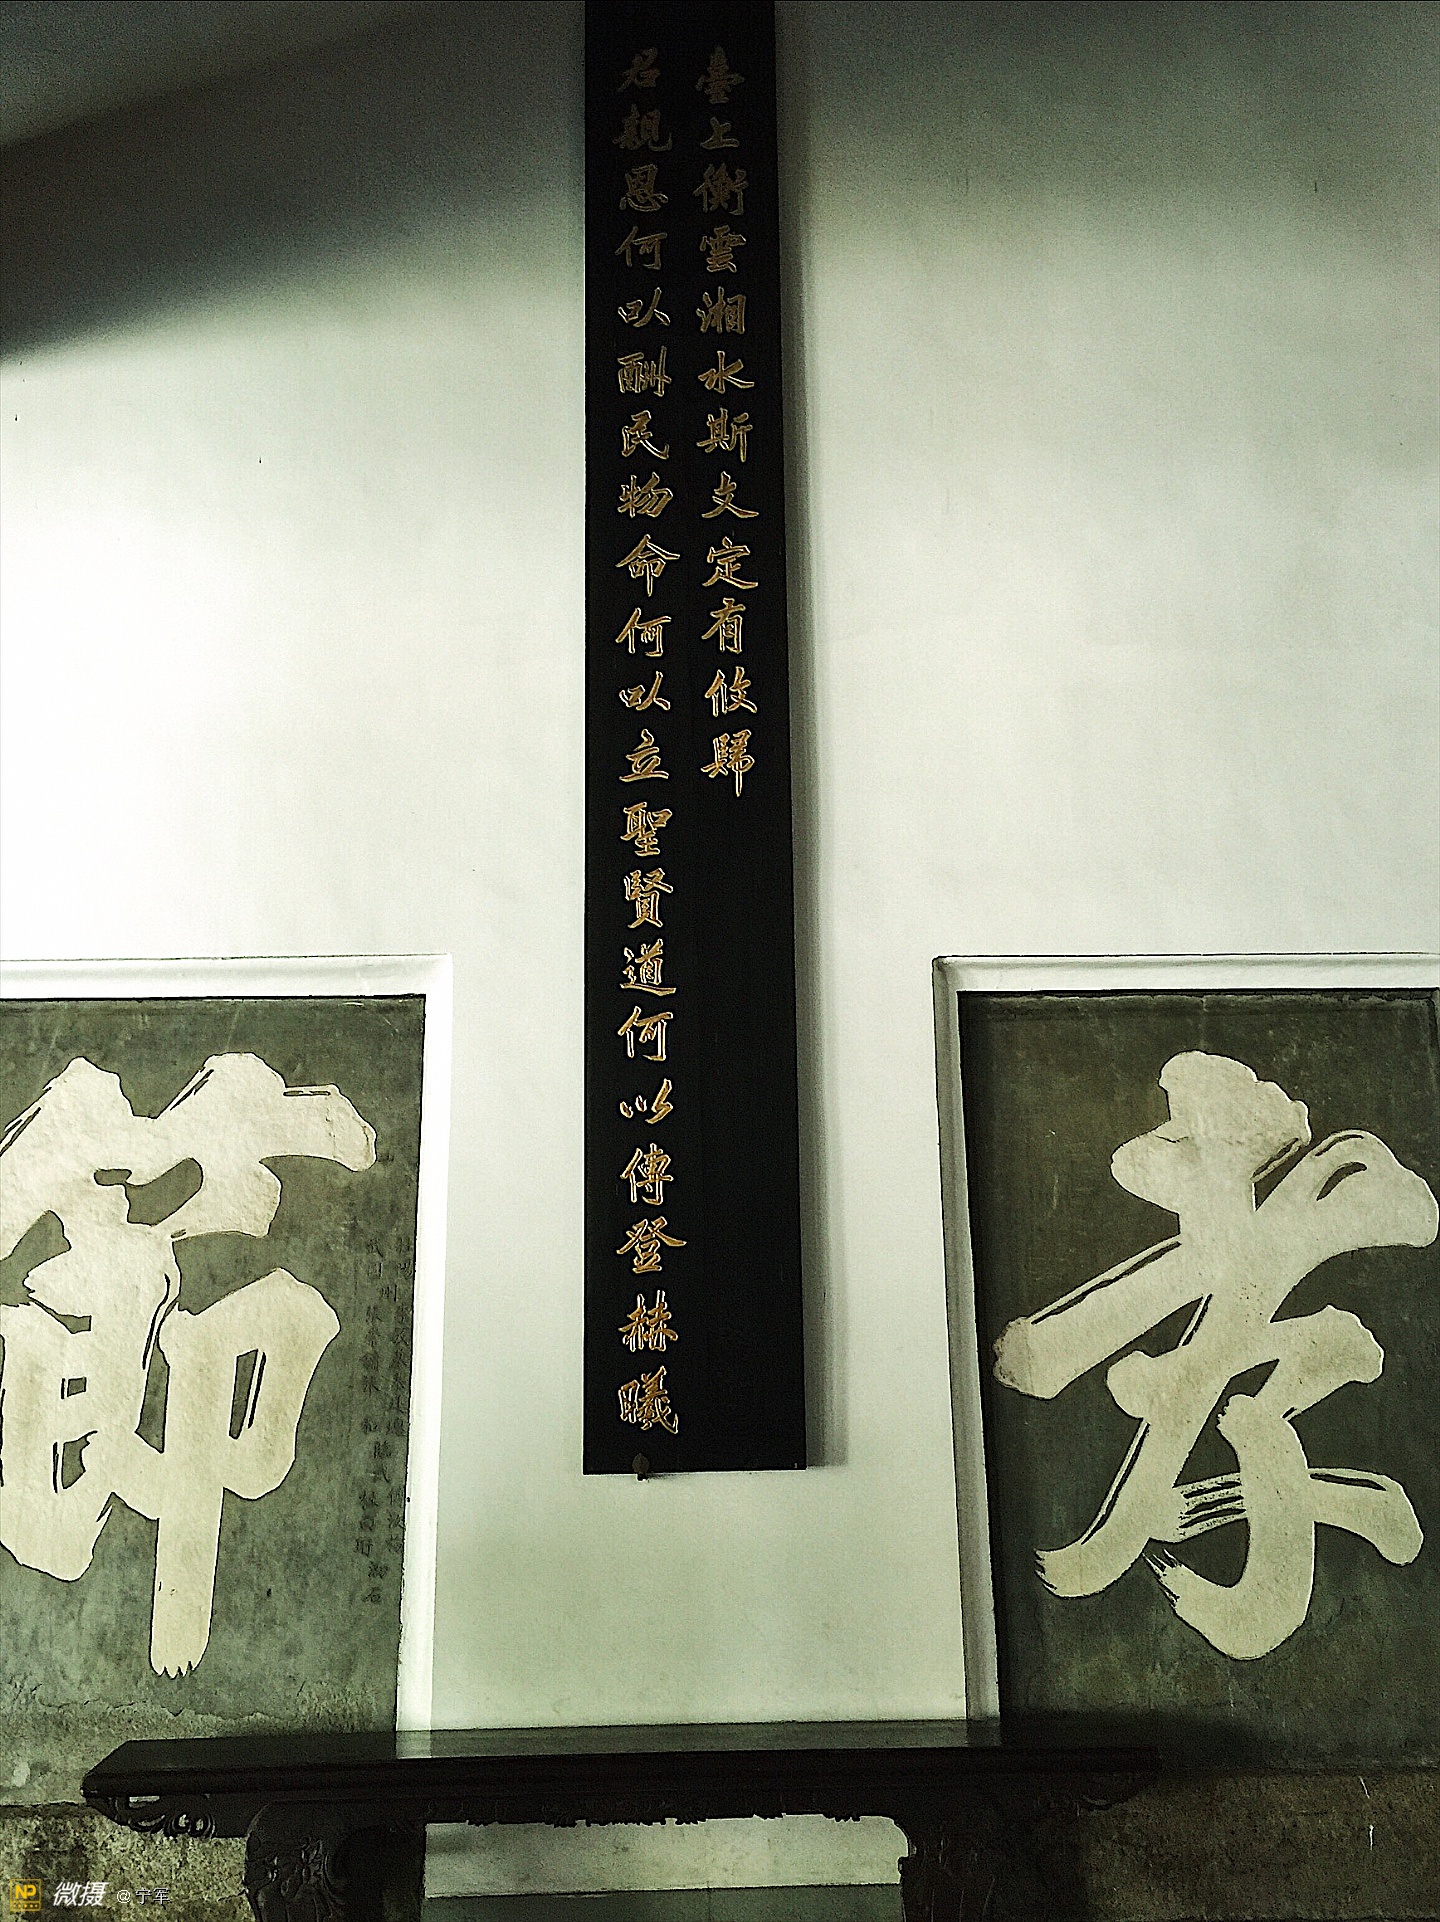 臺上衡雲湘水斯文定有攸歸
君親恩何以酬民物命何以立聖賢道何以傳登赫曦
孝
節
NP 微摄 @宁军